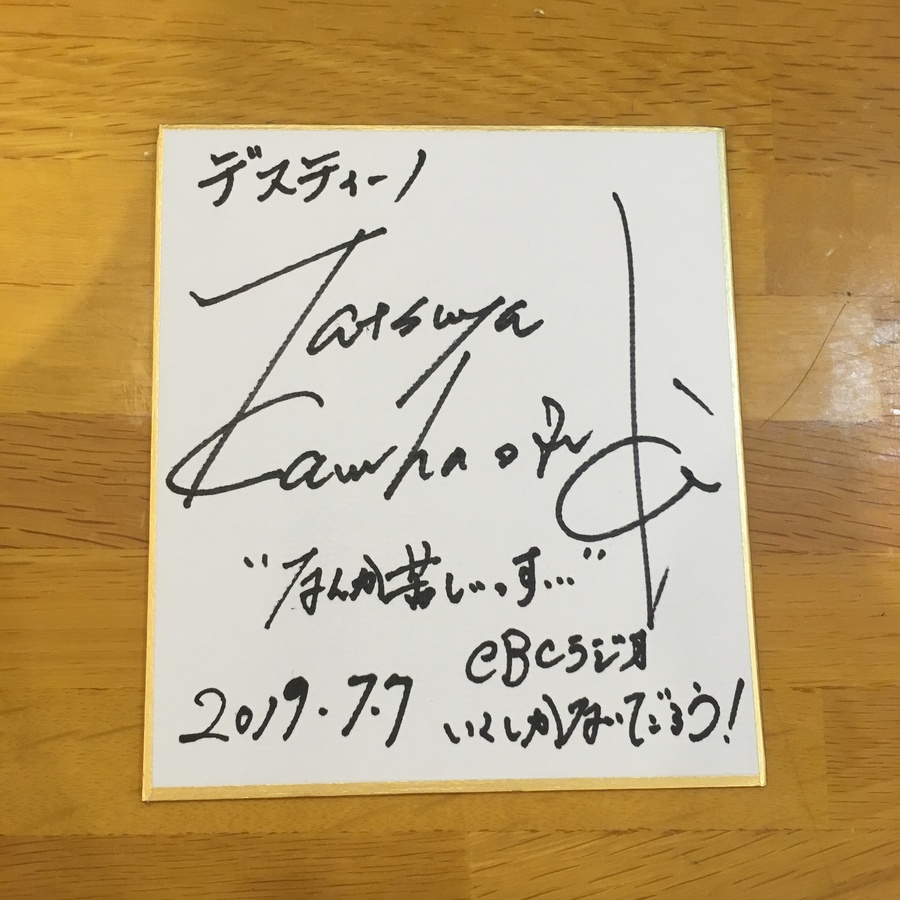 デスティーノ
Tatsuya
Kawhaopn
"なんか苦しいっす…"
CBCラジオ
2019.7.7
いくしかないだろう!